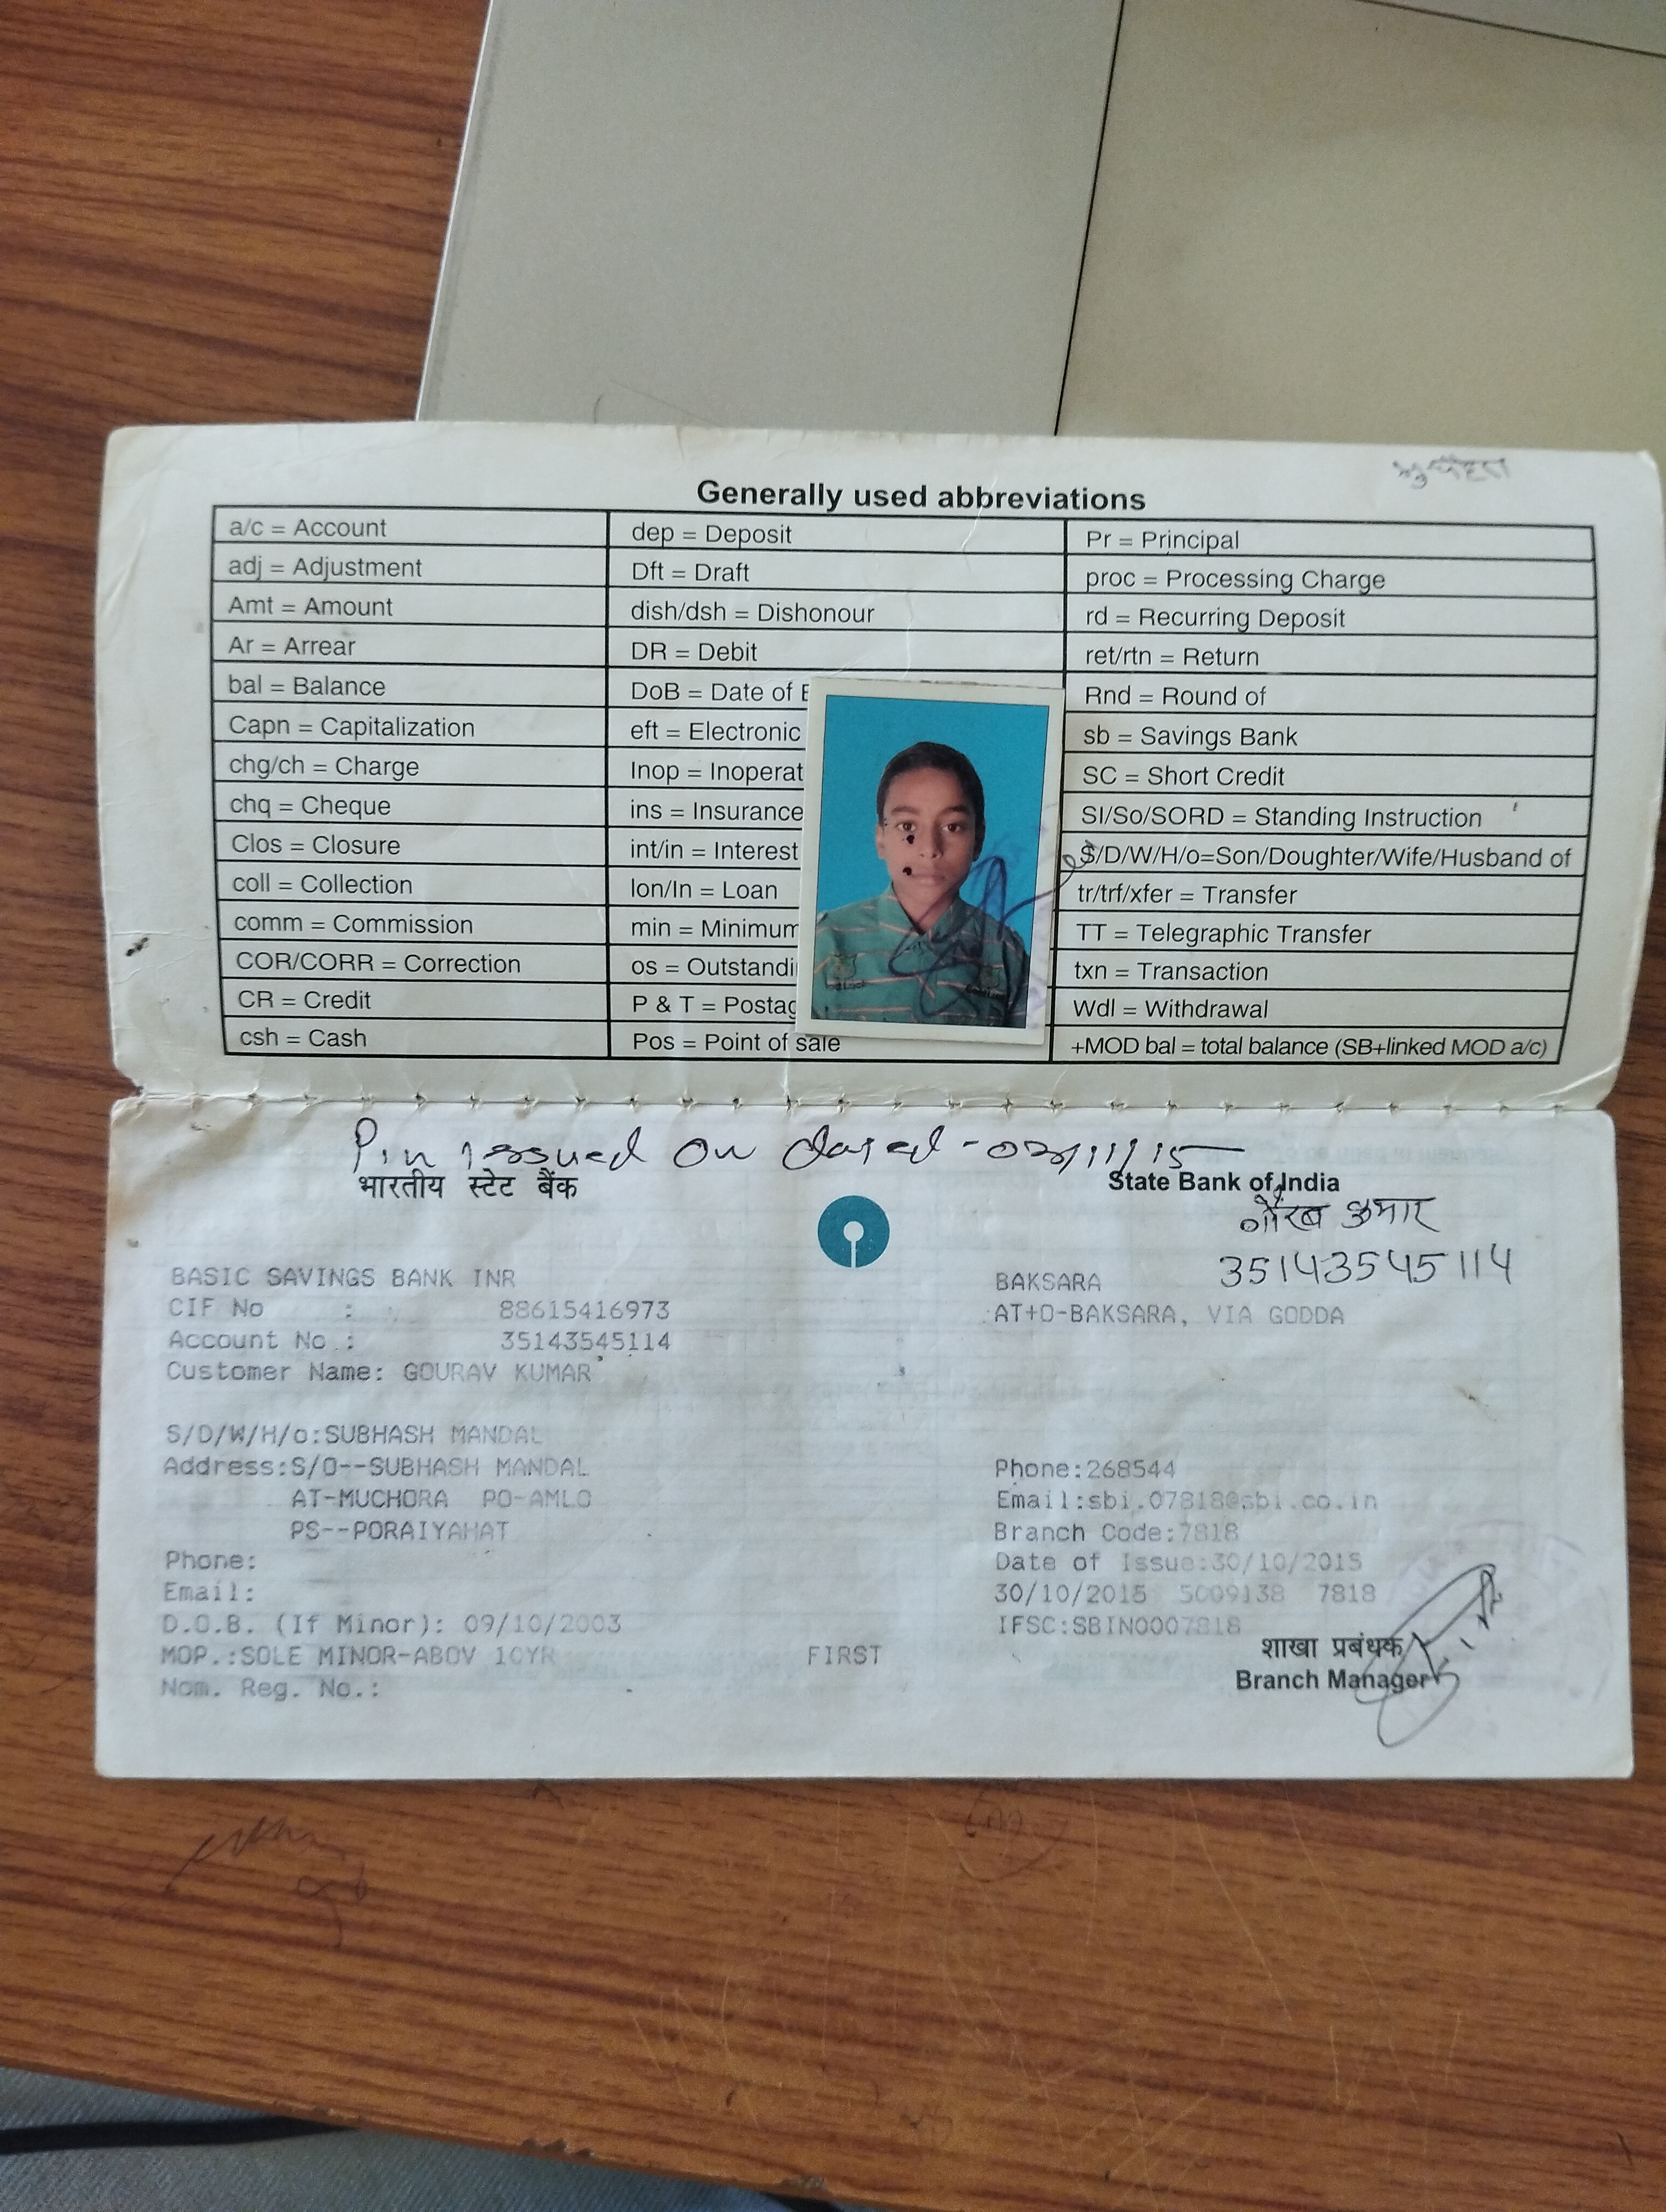 Generally used abbreviations
a/c = Account
adj = Adjustment
Amt = Amount
Ar = Arrear
bal = Balance
Capn = Capitalization
chg/ch = Charge
chq = Cheque
Clos = Closure
coll = Collection
comm = Commission
COR/CORR = Correction
CR = Credit
csh = Cash
dep = Deposit
Dft = Draft
dish/dsh = Dishonour
DR = Debit
DoB = Date of
eft = Electronic
Inop = Inoperat
ins = Insurance
int/in = Interest
lon/ln = Loan
min = Minimum
os = Outstandi
P & T = Postag
Pos = Point of sale
Pr = Principal
proc = Processing Charge
rd = Recurring Deposit
ret/rtn = Return
Rnd = Round of
sb = Savings Bank
SC = Short Credit
SI/So/SORD = Standing Instruction
S/D/W/H/o=Son/Doughter/Wife/Husband of
tr/trf/xfer = Transfer
TT = Telegraphic Transfer
txn = Transaction
Wdl = Withdrawal
+MOD bal = total balance (SB+linked MOD a/c)
Pin issued on dated - 02/11/15
भारतीय स्टेट बैंक
State Bank of India
गौरब कुमार
35143545114
BASIC SAVINGS BANK INR
CIF No : 88615416973
Account No.: 35143545114
Customer Name: GOURAV KUMAR
S/D/W/H/o:SUBHASH MANDAL
Address:S/O--SUBHASH MANDAL
AT-MUCHORA PO-AMLO
PS--PORAIYAHAT
Phone:
Email:
D.O.B. (If Minor): 09/10/2003
MOP.:SOLE MINOR-ABOV 10YR
Nom. Reg. No.:
FIRST
BAKSARA
AT+O-BAKSARA, VIA GODDA
Phone:268544
Email:sbi.07818@sbi.co.in
Branch Code:7818
Date of Issue:30/10/2015
30/10/2015 5009138 7818
IFSC:SBIN0007818
शाखा प्रबंधक
Branch Manager